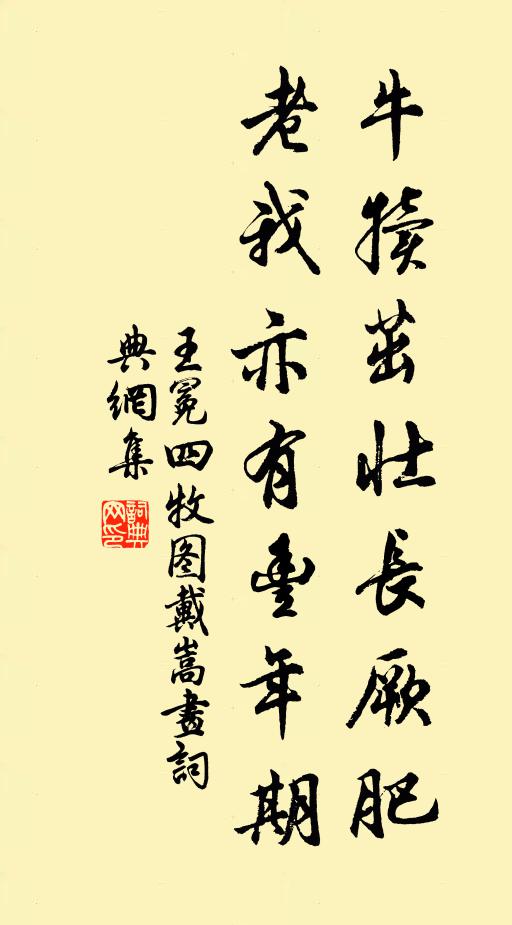 牛犢茁壯長厥肥
老我亦有豐年期
王冕四牧图戴嵩畫詞
典網集
詞典
网印